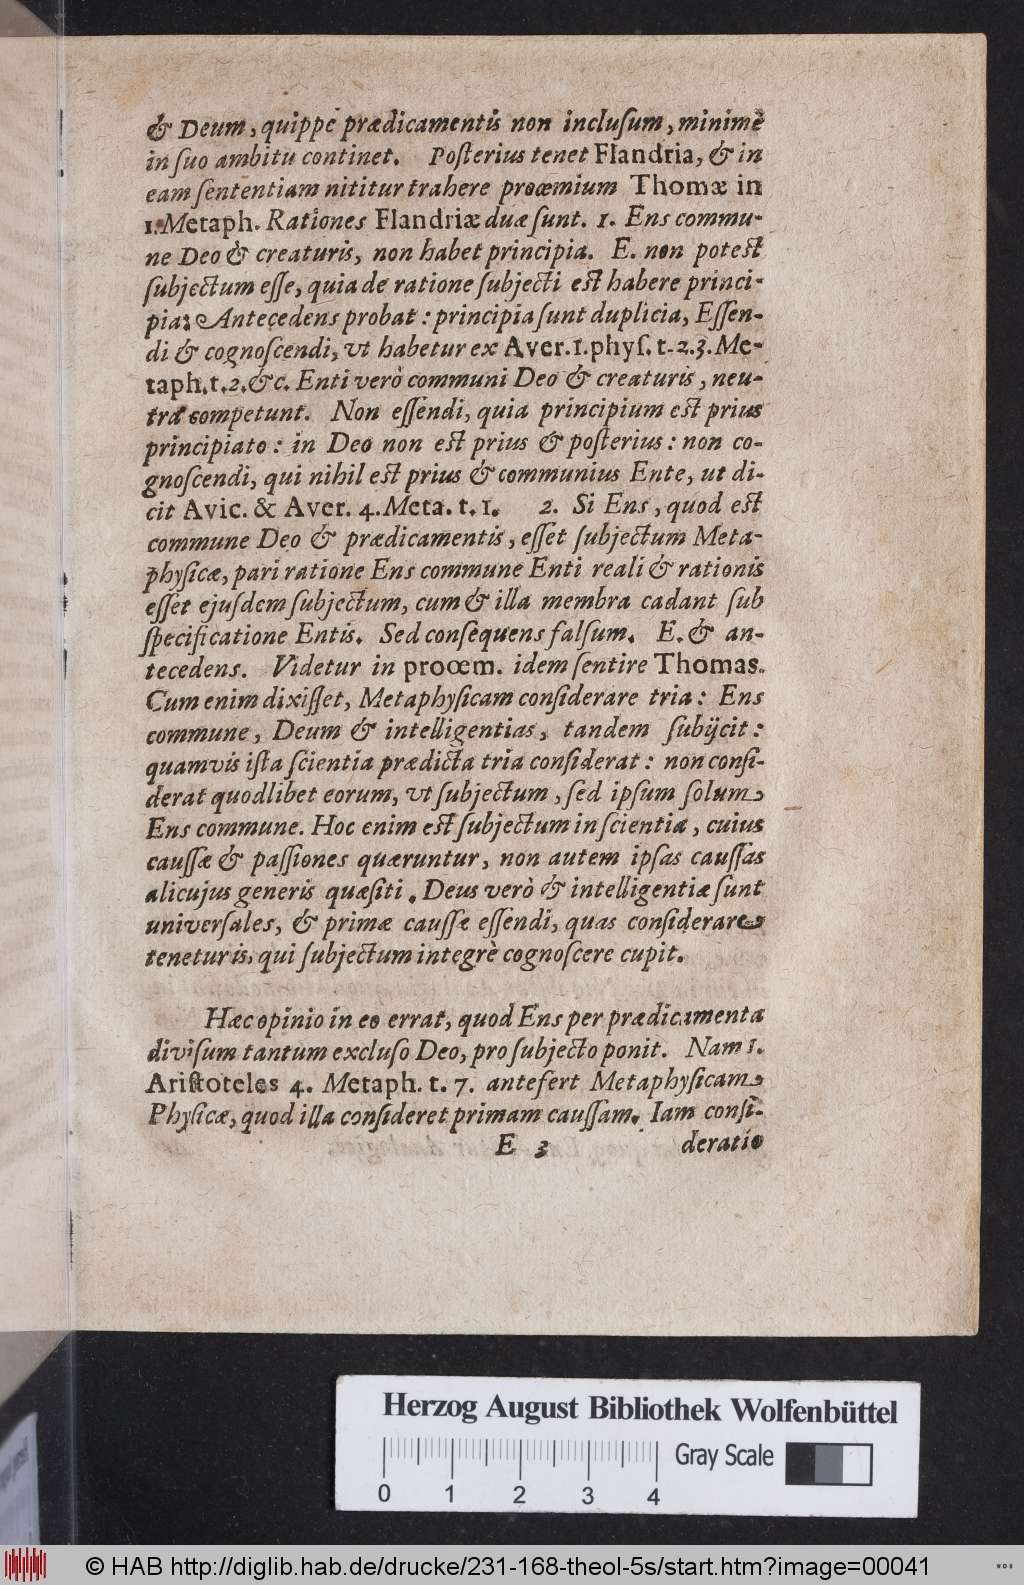 & Deum, quippe prædicamentis non inclusum, minimè
in suo ambitu continet. Posterius tenet Flandria, & in
eam sententiam nititur trahere proœmium Thomæ in
1. Metaph. Rationes Flandriæ duæ sunt. 1. Ens commu-
ne Deo & creaturis, non habet principia. E. non potest
subjectum esse, quia de ratione subjecti est habere princi-
pia; Antecedens probat: principia sunt duplicia, Essen-
di & cognoscendi, vt habetur ex Aver. 1. phys. t. 2. 3. Me-
taph. t. 2. &c. Enti verò communi Deo & creaturis, neu-
tra competunt. Non essendi, quia principium est prius
principiato: in Deo non est prius & posterius: non co-
gnoscendi, qui nihil est prius & communius Ente, ut di-
cit Avic. & Aver. 4. Meta. t. 1. 2. Si Ens, quod est
commune Deo & prædicamentis, esset subjectum Meta-
physicæ, pari ratione Ens commune Enti reali & rationis
esset ejusdem subjectum, cum & illa membra cadant sub
specificatione Entis. Sed consequens falsum. E. & an-
tecedens. Videtur in proœm. idem sentire Thomas.
Cum enim dixisset, Metaphysicam considerare tria: Ens
commune, Deum & intelligentias, tandem subijcit:
quamvis ista scientia prædicta tria considerat: non consi-
derat quodlibet eorum, vt subjectum, sed ipsum solum
Ens commune. Hoc enim est subjectum in scientia, cuius
caussæ & passiones quæruntur, non autem ipsas caussas
alicujus generis quæsiti. Deus verò & intelligentiæ sunt
universales, & primæ caussæ essendi, quas considerare
tenetur is, qui subjectum integrè cognoscere cupit.
Hæc opinio in eo errat, quod Ens per prædicamenta
divisum tantum excluso Deo, pro subjecto ponit. Nam 1.
Aristoteles 4. Metaph. t. 7. antefert Metaphysicam
Physicæ, quod illa consideret primam caussam. Iam consi-
E 3 deratio
Herzog August Bibliothek Wolfenbüttel
Gray Scale
0 1 2 3 4
© HAB http://diglib.hab.de/drucke/231-168-theol-5s/start.htm?image=00041